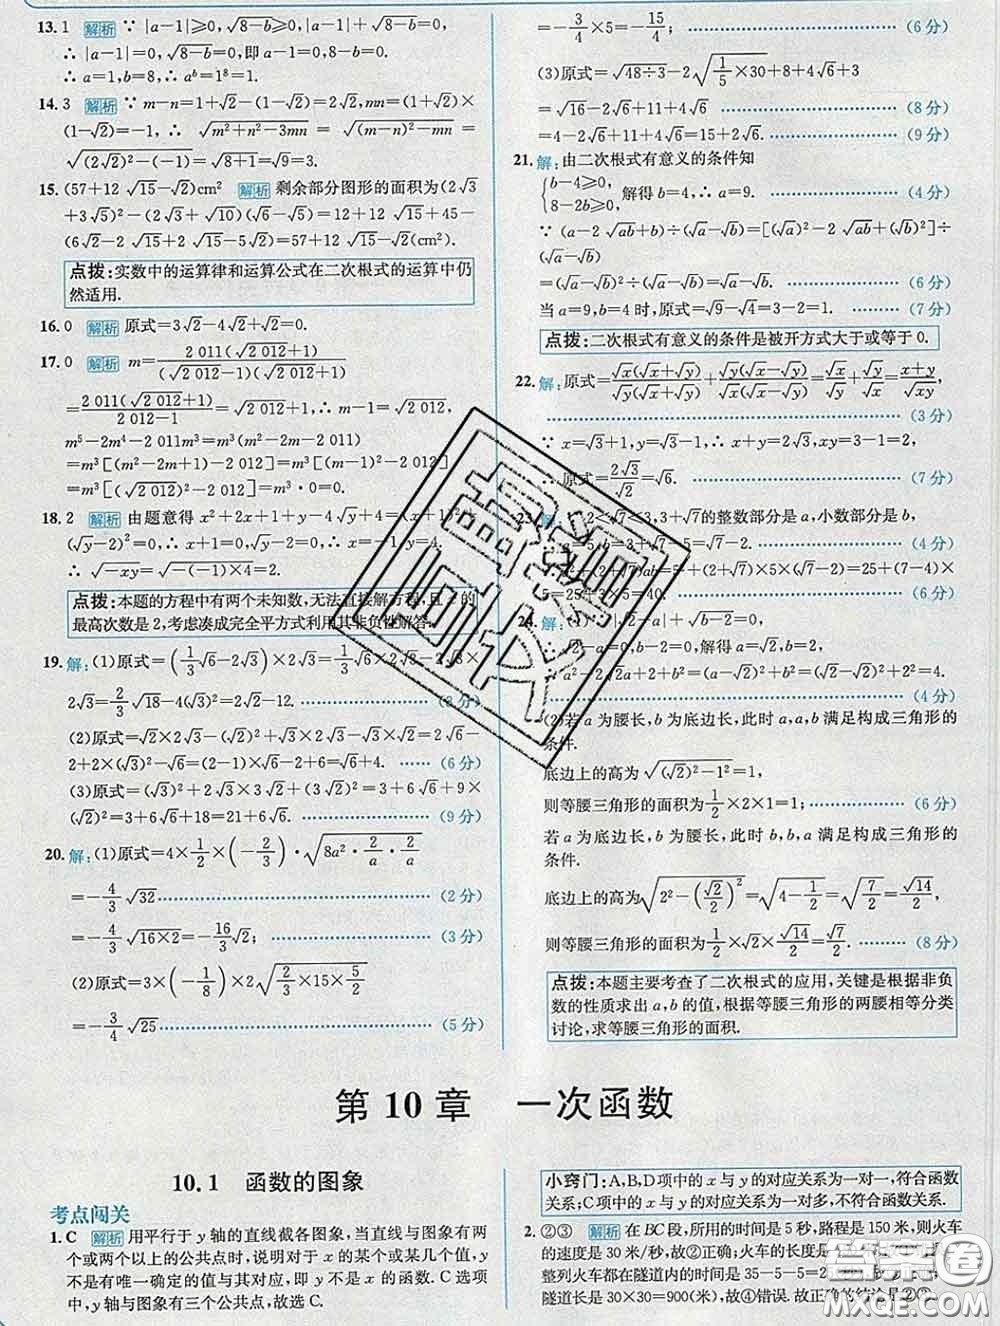 13. 1 解析 ∵ |a-1|≥0, √(8-b)≥0, |a-1|+√(8-b)=0,
∴ |a-1|=0, √(8-b)=0, 即 a-1=0, 8-b=0.
∴ a=1, b=8, ∴ a^b=1^8=1.
14. 3 解析 ∵ m-n=1+√2-(1-√2)=2√2, mn=(1+√2)×
(1-√2)=-1, ∴ √(m²+n²-3mn)=√((m-n)²-mn)=
√((2√2)²-(-1))=√(8+1)=√9=3.
15. (57+12√15-√2)cm² 解析 剩余部分图形的面积为(2√3
+3√5)²-(2√3+√10)(√6-√5)=12+12√15+45-
(6√2-2√15+2√15-5√2)=57+12√15-√2(cm²).
点拨:实数中的运算律和运算公式在二次根式的运算中仍
然适用.
16. 0 解析 原式=3√2-4√2+√2=0.
17. 0 解析 m=2 011(√2 012+1)/((√2 012-1)(√2 012+1))
=2 011(√2 012+1)/(2 012-1)=√2 012+1, ∴ m-1=√2 012,
m⁵-2m⁴-2 011m³=m³(m²-2m-2 011)
=m³[(m²-2m+1)-2 012]=m³[(m-1)²-2 012]
=m³[(√2 012)²-2 012]=m³×0=0.
18. 2 解析 由题意得 x²+2x+1+y-4√y+4=0, (x+1)²+
(√y-2)²=0, ∴ x+1=0, √y-2=0, ∴ x=-1, y=4,
∴ √(-xy)=√(-(-1)×4)=2.
点拨:本题的方程中有两个未知数,无法直接解方程,且 的
最高次数是2,考虑凑成完全平方式利用其非负性解答.
19. 解:(1)原式=(1/3√6-2√3)×2√3=1/3√6×2√3-2√3×
2√3=2/3√18-4(√3)²=2√2-12. (3分)
(2)原式=√2×√2-2√3×√2+√3×√2-√3×√2=2-
2+2×(√6)-(√6)=2√6-√6+2=√6+4. (6分)
(3)原式=(√3)²+2×√3×3√2+(3√2)²=3+6√6+9×
(√2)²=3+6√6+18=21+6√6. (9分)
20. 解:(1)原式=4×1/2×(-2/3)·√(8a²·2/a·2/a)
=-4/3√32 (2分)
=-4/3√(16×2)=-16/3√2; (3分)
(2)原式=3×(-1/8)×2√(2/5×15×5/2)
=-3/4√25 (5分)
=-3/4×5=-15/4; (6分)
(3)原式=√(48÷3)-2√(1/5×30)+8+4√6+3
=√16-2√6+11+4√6 (8分)
=4-2√6+11+4√6=15+2√6. (9分)
21. 解:由二次根式有意义的条件知
{b-4≥0, 8-2b≥0, 解得 b=4, ∴ a=9. (4分)
∵ (a-2√ab+b)÷(√a-√b)=[(√a)²-2√ab+(√b)²]÷
(√a-√b)
=(√a-√b)²÷(√a-√b)=√a-√b. (6分)
当 a=9, b=4 时,原式=√9-√4=3-2=1. (7分)
点拨:二次根式有意义的条件是被开方式大于或等于0.
22. 解:原式=√x(√x+√y)/(√y(√x+√y))+√y(√x-√y)/(√x(√x-√y))=√x/√y+√y/√x=(x+y)/√xy,
(3分)
∵ x=√3+1, y=√3-1, ∴ x+y=2√3, xy=3-1=2,
∴ 原式=2√3/√2=√6. (7分)
23. 解:∵ 2<√7<3, 3+√7的整数部分是a,小数部分是b,
∴ a=5, b=3+√7-5=√7-2. (4分)
5=25+3×6=43. (6分)
24. 解:
(4分)
(2)若 a 为腰长,b 为底边长,此时 a,a,b 满足构成三角形的
条件.
底边上的高为√((√2)²-1²)=1.
则等腰三角形的面积为1/2×2×1=1. (6分)
若 a 为底边长,b 为腰长,此时 b,b,a 满足构成三角形的
条件.
底边上的高为√(2²-(√2/2)²)=√(4-1/2)=√(7/2)=√14/2,
则等腰三角形的面积为1/2×√2×√14/2=√7/2. (8分)
点拨:本题主要考查了二次根式的应用,关键是根据非负
数的性质求出 a,b 的值,根据等腰三角形的两腰相等分类
讨论,求等腰三角形的面积.
第10章 一次函数
10.1 函数的图象
考点闯关
1. C 解析 用平行于 y 轴的直线截各图象,当直线与图象有两
个或两个以上的公共点时,说明对于 x 的某个或某几个值,y
不是有唯一确定的值与其对应,即 y 不是 x 的函数. C 选项
中,y 轴与图象有三个公共点,故选 C.
小窍门:A,B,D项中的 x 与 y 的对应关系为一对一,符合函数
关系;C项中的 x 与 y 的对应关系为一对多,不符合函数关系.
2. ②③ 解析 在 BC 段,所用的时间是 5 秒,路程是 150 米,则火车
的速度是 30 米/秒,故②正确;火车的长度是
整列火车都在隧道内的时间是 35-5-5=
隧道长是 30×30=900(米),故④错误.故正确的结论是②③.
答案圈
MXQE.COM